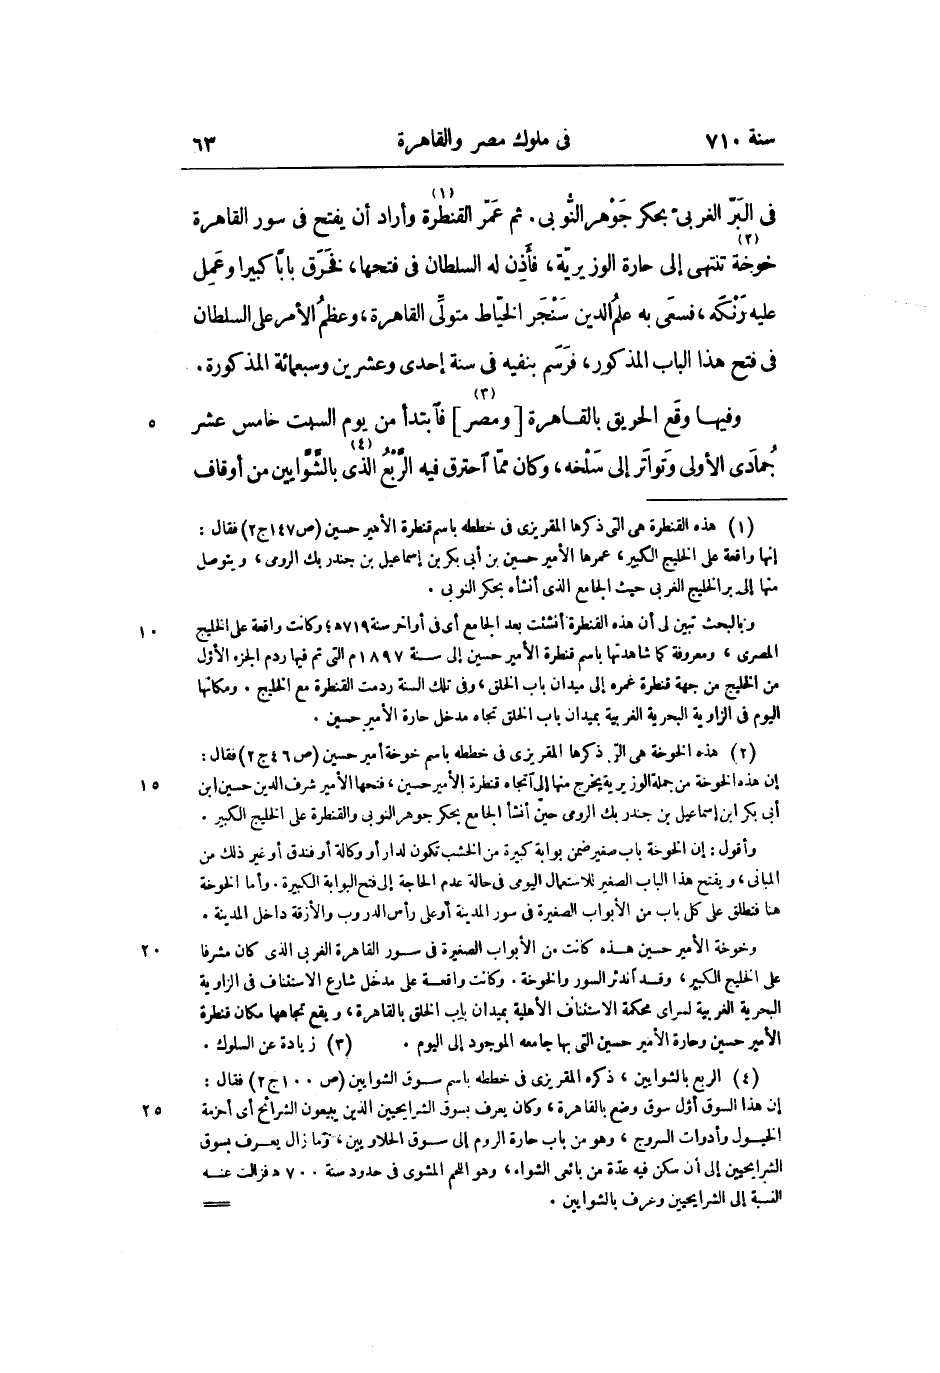 سنة ٧١٠ فى ملوك مصر والقاهرة ٦٣
فى البَرّ الغربىّ بحكر جَوْهر النُّوبى. ثم عَمَّر القنطرة (١) وأراد أن يفتح فى سور القاهرة
خوخة (٢) تنتهى إلى حارة الوزيريّة، فأَذِن له السلطان فى فتحها، فخَرَق بابًا كبيرا وعَمِل
عليه رَنْكَه، فسعَى به علمُ الدين سَنْجَر الخيّاط متولِّى القاهرة، وعظُم الأمر على السلطان
فى فتح هذا الباب المذكور، فرَسَم بنفيه فى سنة إحدى وعشرين وسبعمائة المذكورة.
وفيها وقَع الحريق بالقاهرة [ومصر] (٣) فآبتدأ من يوم السبت خامس عشر ٥
جُمادَى الأولى وتَواتَر إلى سَلْخه، وكان ممّا آحترق فيه الرَّبْعُ (٤) الذى بالشَّوّايين من أوقاف
(١) هذه القنطرة هى التى ذكرها المقريزى فى خططه باسم قنطرة الأمير حسين (ص ١٤٧ ج ٢) فقال :
إنها واقعة على الخليج الكبير، عمرها الأمير حسين بن أبى بكر بن إسماعيل بن جندر بك الرومى، ويتوصل
منها إلى بر الخليج الغربى حيث الجامع الذى أنشأه بحكر النوبى.
وبالبحث تبين لى أن هذه القنطرة أنشئت بعد الجامع أى فى أواخر سنة ٧١٩ ه؛ وكانت واقعة على الخليج ١٠
المصرى، ومعروفة كما شاهدتها باسم قنطرة الأمير حسين إلى سنة ١٨٩٧ م التى تم فيها ردم الجزء الأوّل
من الخليج من جهة قنطرة غمره إلى ميدان باب الخلق، وفى تلك السنة ردمت القنطرة مع الخليج. ومكانها
اليوم فى الزاوية البحرية الغربية بميدان باب الخلق تجاه مدخل حارة الأمير حسين.
(٢) هذه الخوخة هى التى ذكرها المقريزى فى خططه باسم خوخة أمير حسين (ص ٤٦ ج ٢) فقال :
إن هذه الخوخة من جملة الوزيرية يخرج منها إلى آتجاه قنطرة الأمير حسين، فتحها الأمير شرف الدين حسين ابن ١٥
أبى بكر ابن إسماعيل بن جندر بك الرومى حين أنشأ الجامع بحكر جوهر النوبى والقنطرة على الخليج الكبير.
وأقول : إن الخوخة باب صغير ضمن بوابة كبيرة من الخشب تكون لدار أو وكالة أو فندق أو غير ذلك من
المبانى، ويفتح هذا الباب الصغير للاستعمال اليومى فى حالة عدم الحاجة إلى فتح البوابة الكبيرة. وأما الخوخة
هنا فتطلق على كل باب من الأبواب الصغيرة فى سور المدينة أو على رأس الدروب والأزقة داخل المدينة.
وخوخة الأمير حسين هذه كانت من الأبواب الصغيرة فى سور القاهرة الغربى الذى كان مشرفا ٢٠
على الخليج الكبير، وقد آندثر السور والخوخة. وكانت واقعة على مدخل شارع الاستئناف فى الزاوية
البحرية الغربية لسراى محكمة الاستئناف الأهلية بميدان باب الخلق بالقاهرة، ويقع تجاهها مكان قنطرة
الأمير حسين وحارة الأمير حسين التى بها جامعه الموجود إلى اليوم. (٣) زيادة عن السلوك.
(٤) الربع بالشوايين، ذكره المقريزى فى خططه باسم سوق الشوايين (ص ١٠٠ ج ٢) فقال :
إن هذا السوق أوّل سوق وضع بالقاهرة، وكان يعرف بسوق الشرايحيين الذين يبيعون الشرائح أى أحزمة ٢٥
الخيول وأدوات السروج، وهو من باب حارة الروم إلى سوق الحلاويين، وما زال يعرف بسوق
الشرايحيين إلى أن سكن فيه عدّة من بائعى الشواء، وهو اللحم المشوى فى حدود سنة ٧٠٠ ه فزالت عنه
النسبة إلى الشرايحيين وعرف بالشوايين.